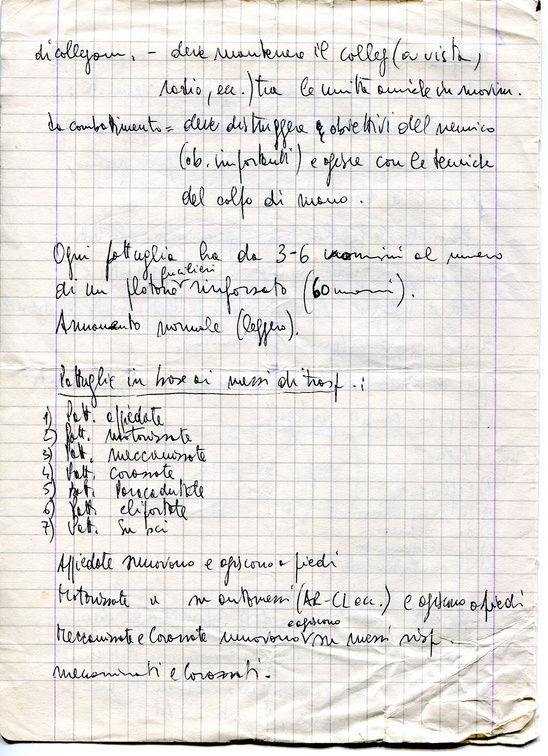 di collegam. - deve mantenere il colleg (a vista,
radio, ecc.) tra le unità amiche in movim.
da combattimento = deve distruggere obbiettivi del nemico
(ob. importanti) e agisce con le tecniche
del colpo di mano.
Ogni pattuglia ha da 3-6 uomini al numero
fucilieri
di un plotone rinforzato (60 uomini).
Armamento normale (leggero).
Pattuglie in base ai mezzi di trasp.:
1) Patt. appiedate
2) Patt. motorizzate
3) Patt. meccanizzate
4) Patt. corazzate
5) Patt. Paracadutate
6) Patt. eliportate
7) Patt. Su sci
Appiedate muovono e agiscono a piedi
Motorizzate su automezzi (AR-CL ecc.) e agiscono a piedi
e agiscono
Meccanizzate e Corazzate muovono su mezzi risp.
meccanizzati e Corazzati.